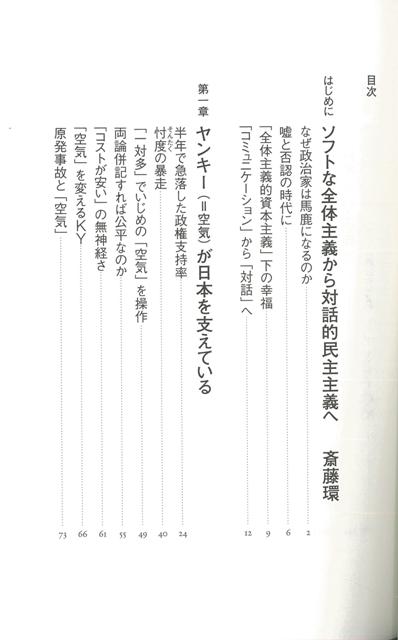 目次
はじめに ソフトな全体主義から対話的民主主義へ 斎藤環
なぜ政治家は馬鹿になるのか 2
嘘と否認の時代に 6
「全体主義的資本主義」下の幸福 9
「コミュニケーション」から「対話」へ 12
第一章 ヤンキー(=空気)が日本を支えている
半年で急落した政権支持率 24
忖度の暴走 40
そんたく
「一対多」でいじめの「空気」を操作 49
両論併記すれば公平なのか 55
「コストが安い」の無神経さ 61
「空気」を変えるKY 66
原発事故と「空気」 73